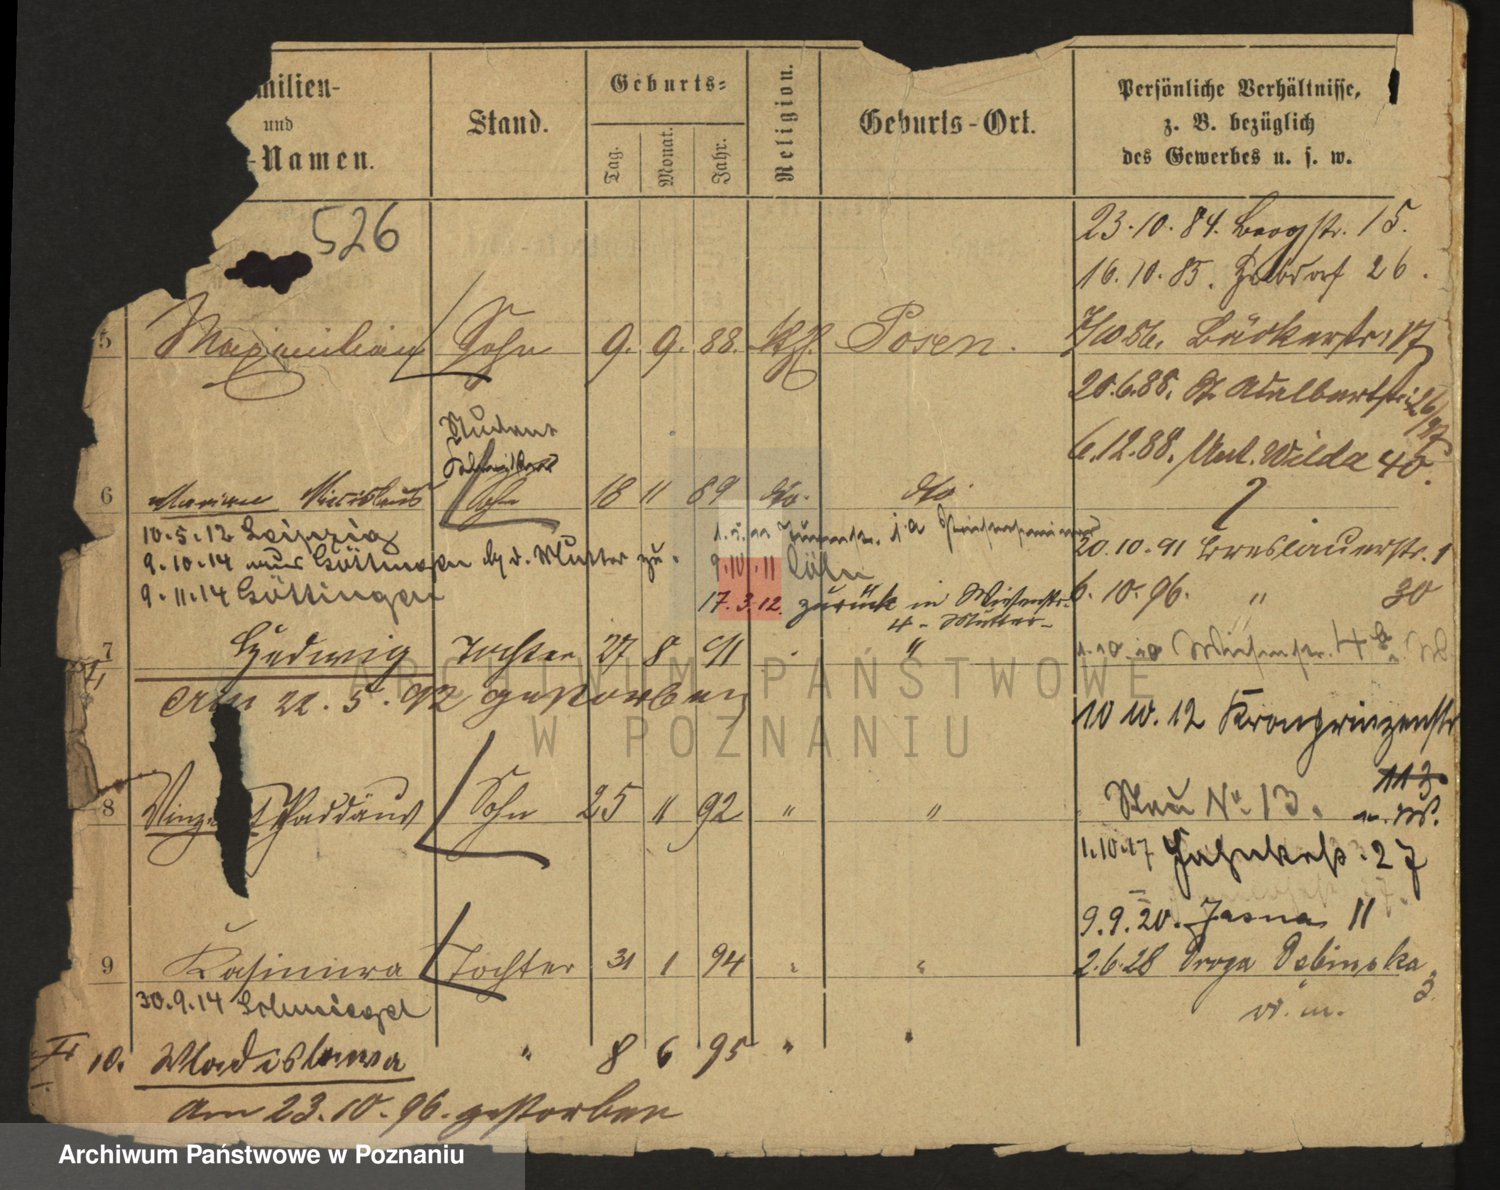 milien-
und
-Namen.
Stand.
Geburts-
Tag.
Monat.
Jahr.
Religion.
Geburts-Ort.
Persönliche Verhältnisse,
z. B. bezüglich
des Gewerbes u. s. w.
526
23.10.84. Bergstr. 15.
16.10.85. 26.
5 Maximilian Sohn 9. 9. 88. kth. Posen.
7/10.86. Bäckerstr. 17
20.6.88. St. Adalbertstr. 26/27
Student
6.12.88. Unt. Wilda 40.
6 Marian Miecislaus Sohn 18 11 89 dto. dto
10.5.12 Leipzig
20.10.91 Breslauerstr. 1
9.10.14 aus Göttingen bg d. Mutter zu.
9.10.11 Cöln
9.11.14 Göttingen
17.3.12. zurück in Wiesenstr.
4 - Mutter -
6.10.96. " 30
7 Hedwig Tochter 27 8 91 "
1.10.10 Wiesenstr. 4
Am 22.5.92 gestorben
10 10.12 Kronprinzenstr
113
8 Vinzent Thaddäus Sohn 25 " 92 " "
Neu No 13.
1.10.17 27
9.9.20. Jasna 11
9 Kasimira Tochter 31 1 94 " "
2.6.28 Droga Dębinska 3
30.9.14 Schmiegel
10. Wladislawa " 8 6 95 " "
Am 23.10.96. gestorben
ARCHIWUM PAŃSTWOWE
W POZNANIU
Archiwum Państwowe w Poznaniu